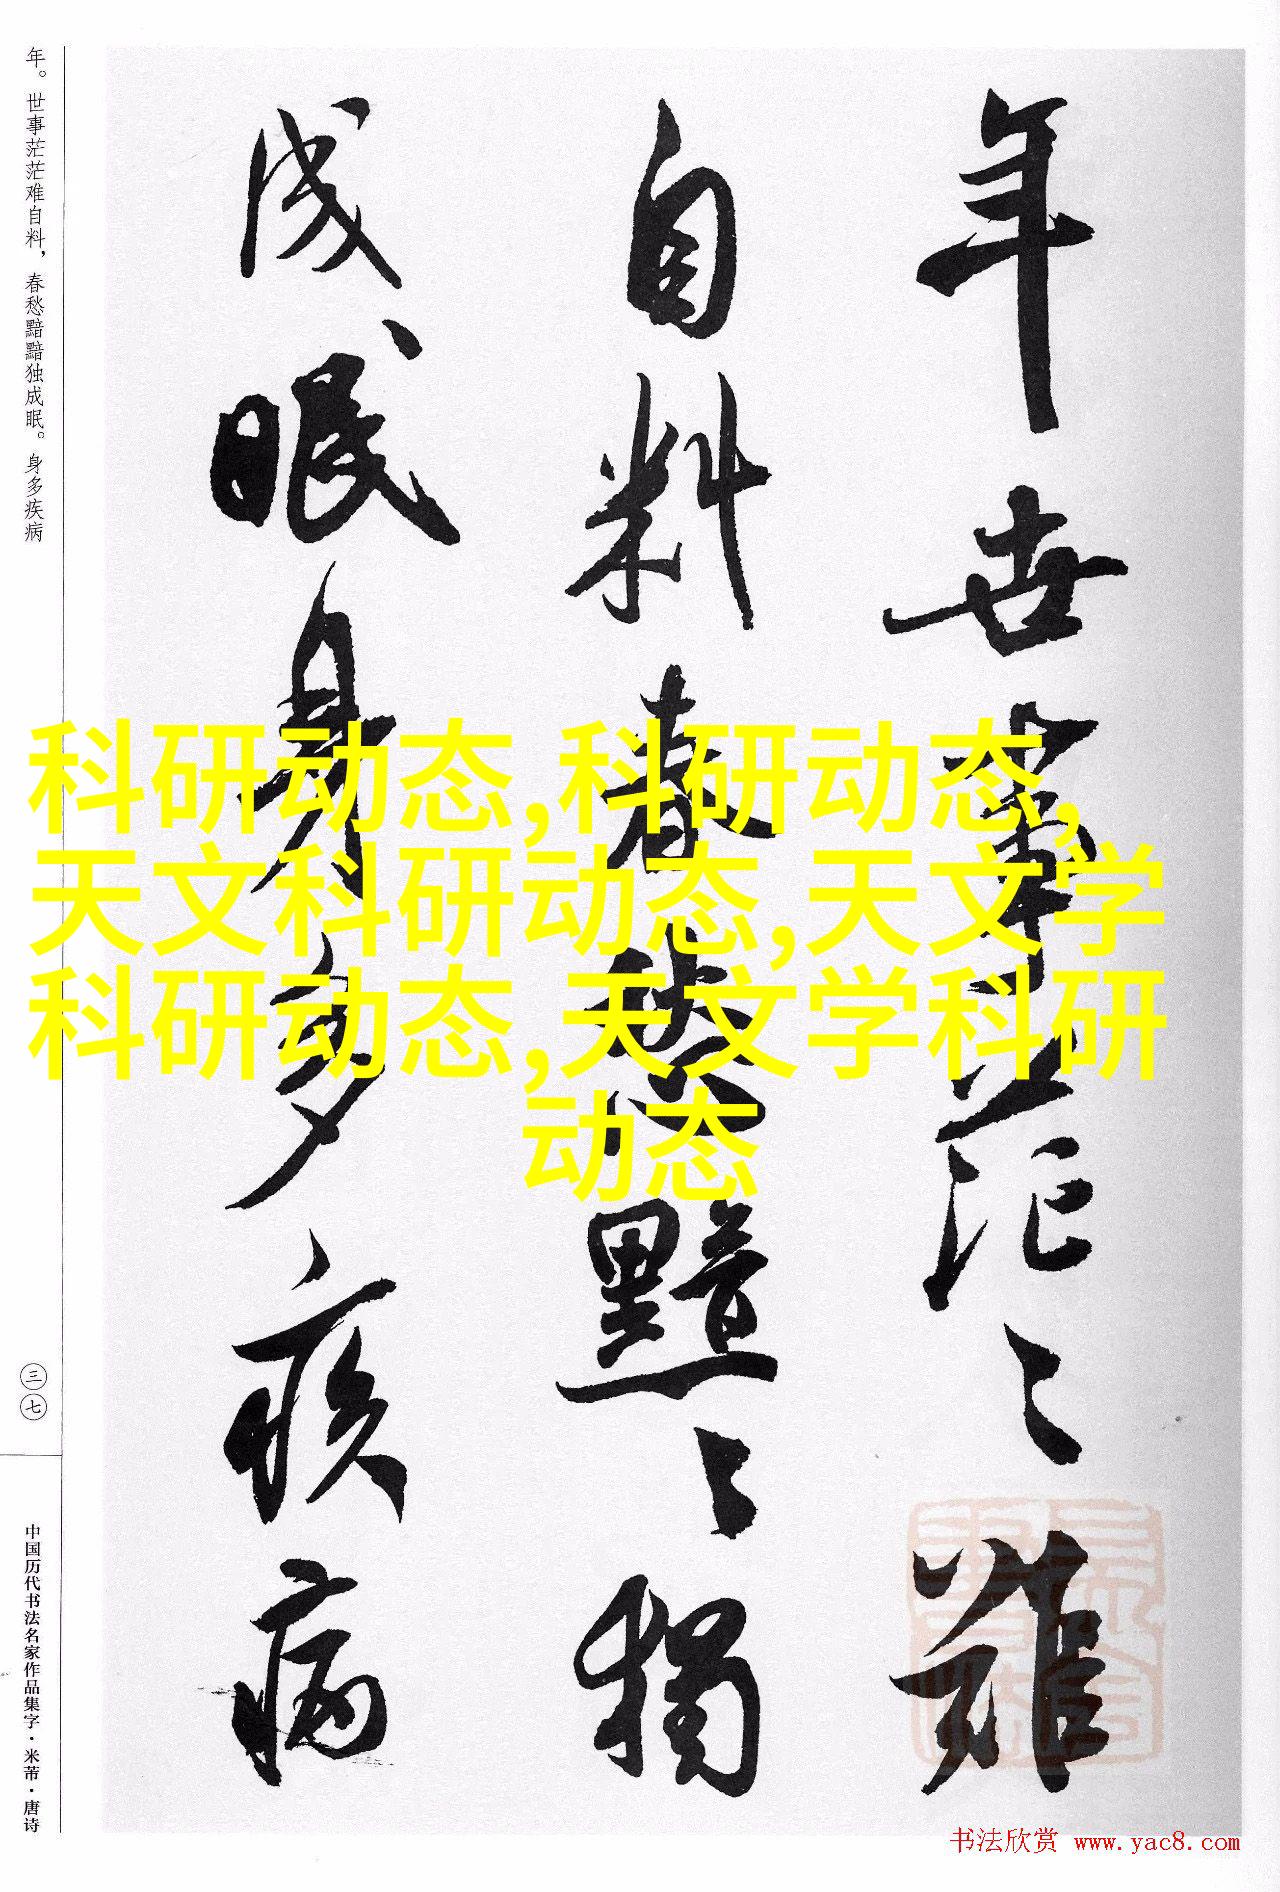 年世事茫〻難
自料春愁黯〻獨
成眠身多疾病
年。世事茫茫难自料，春愁黯黯独成眠。身多疾病
三七
中国历代书法名家作品集字·米芾·唐诗
科研动态,科研动态,
天文科研动态,天文学
科研动态,天文学科研
动态
书法欣赏 www.yac8.com